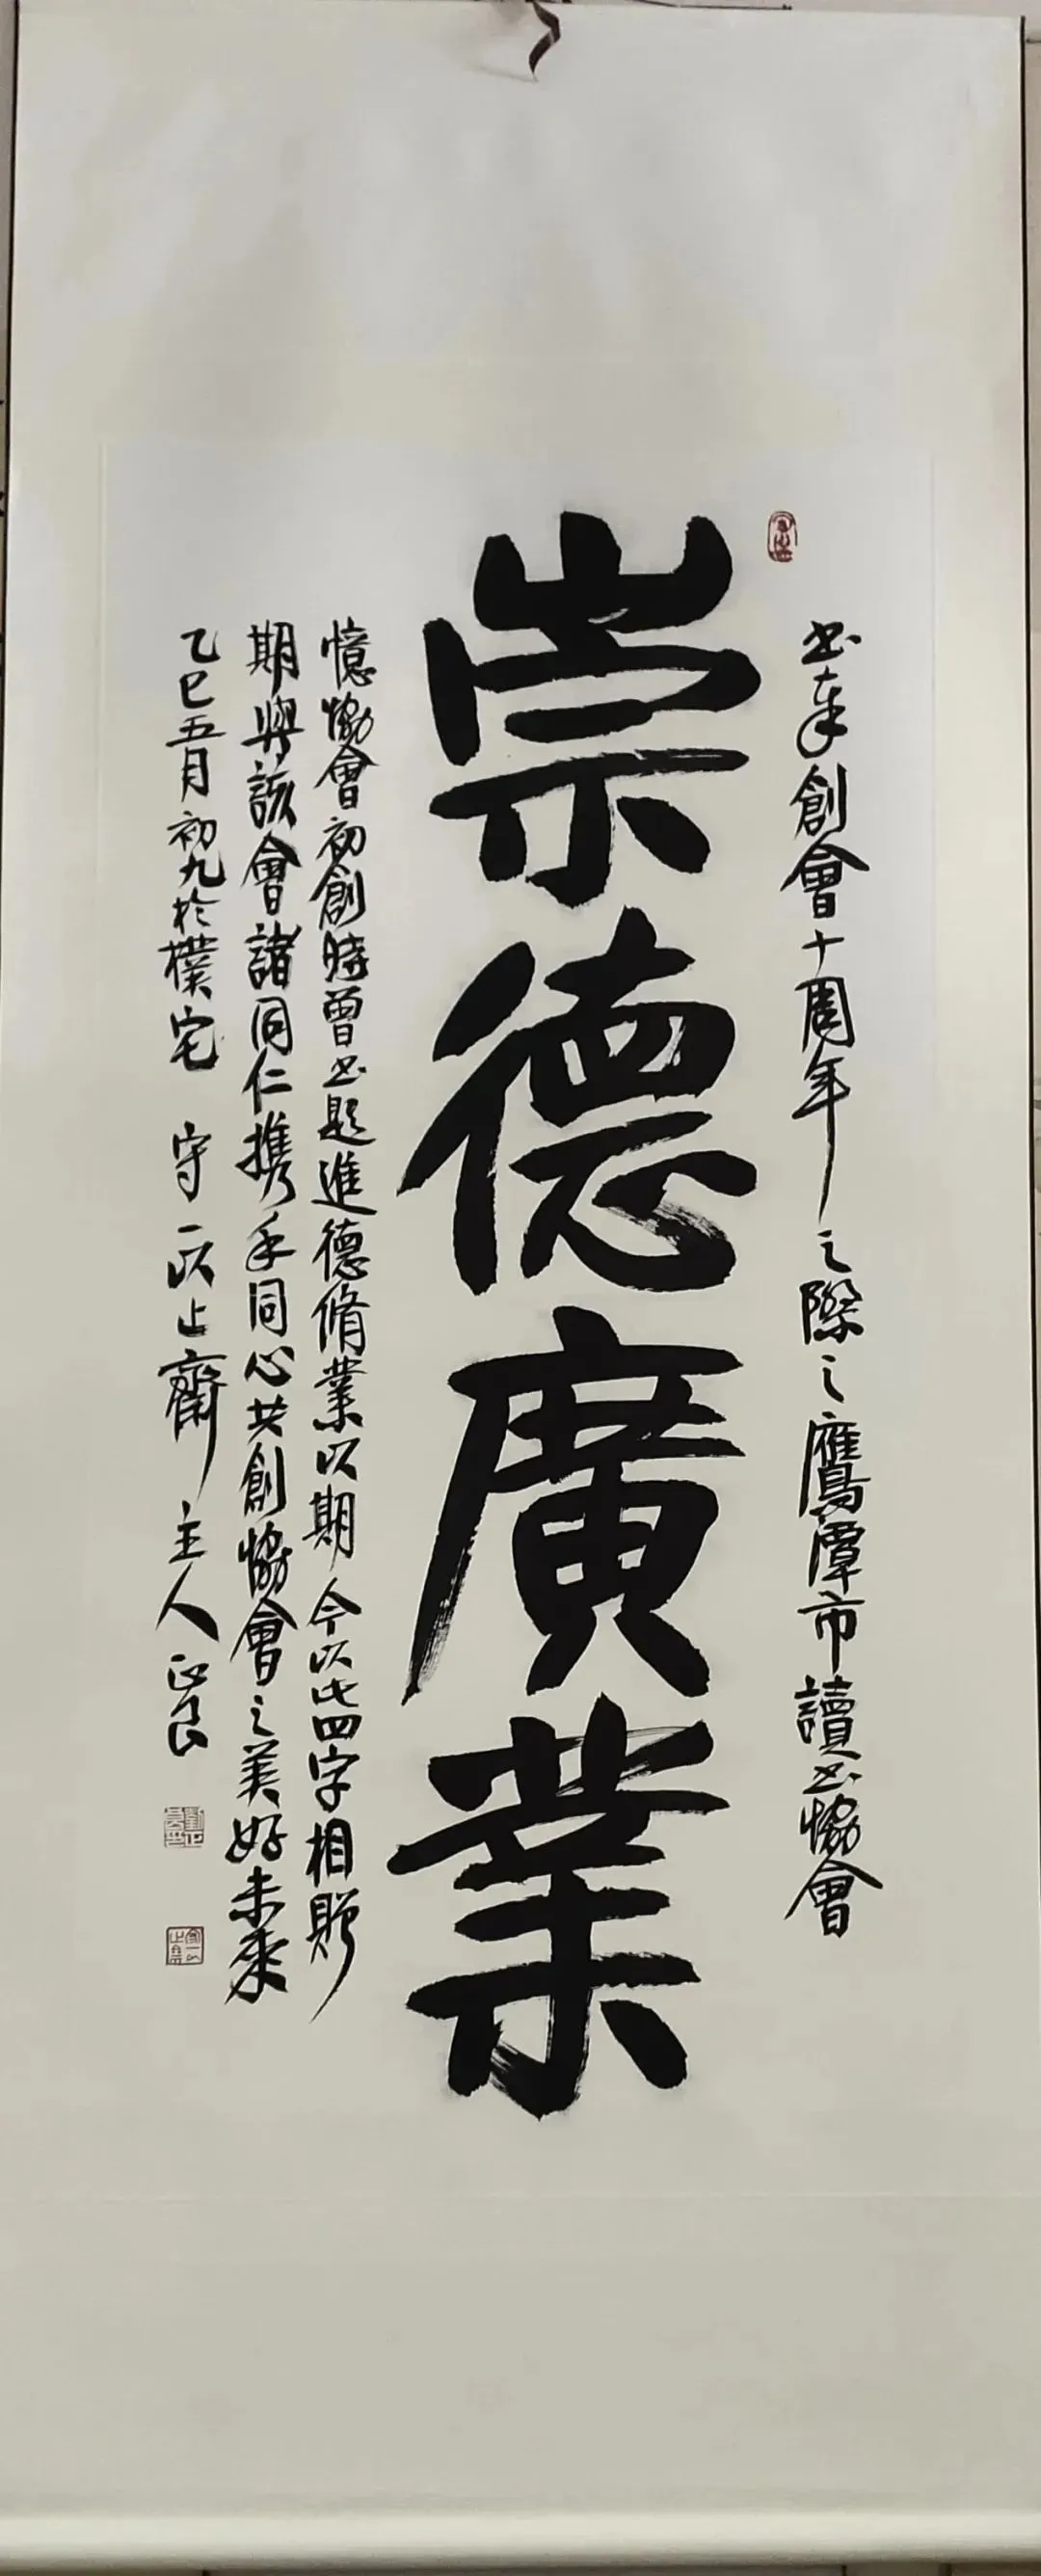 書奉創會十周年之際之鷹潭市讀書協會
崇德廣業
憶協會初創時曾書題進德脩業以期今以此四字相贈
期與該會諸同仁携手同心共創協會之美好未來
乙巳五月初九於樸宅 守一以止齋主人正良